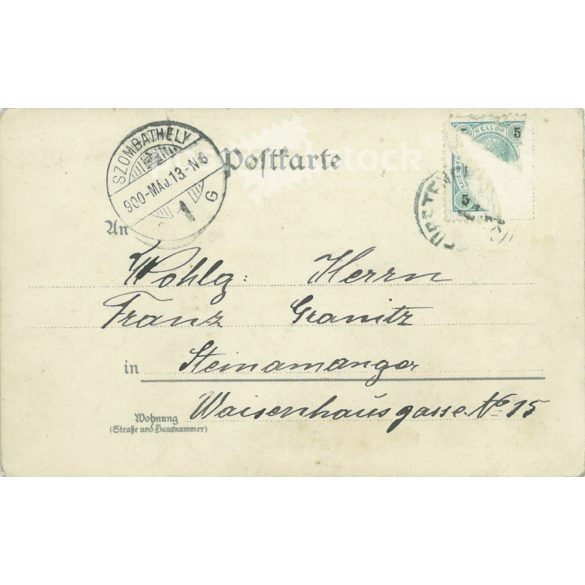 SZOMBATHELY
900-MÁJ.13-N6
1
G
Postkarte
HELLER
5
5
An
Wohlg: Herrn
Franz Granitz
in Steinamanger
Waisenhausgasse No 15
Wohnung
(Straße und Hausnummer)